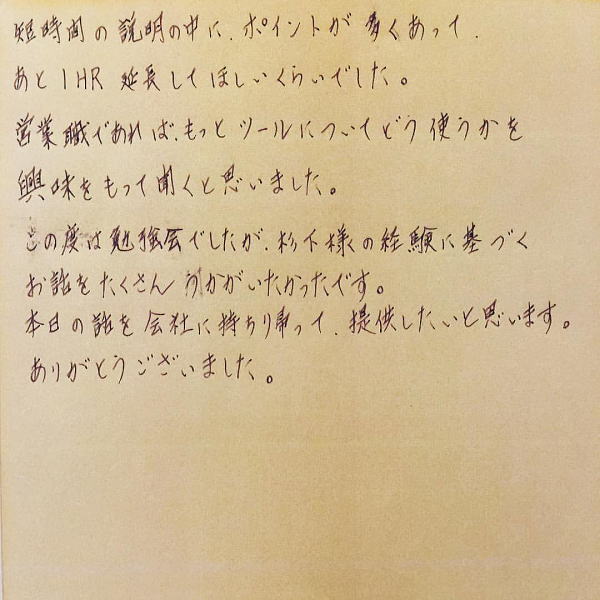 短時間の説明の中に、ポイントが多くあって、
あと1HR 延長してほしいくらいでした。
営業職であれば、もっとツールについてどう使うかを
興味をもって聞くと思いました。
この度は勉強会でしたが、杉下様の経験に基づく
お話をたくさんうかがいたかったです。
本日の話を会社に持ちり帰って、提供したいと思います。
ありがとうございました。